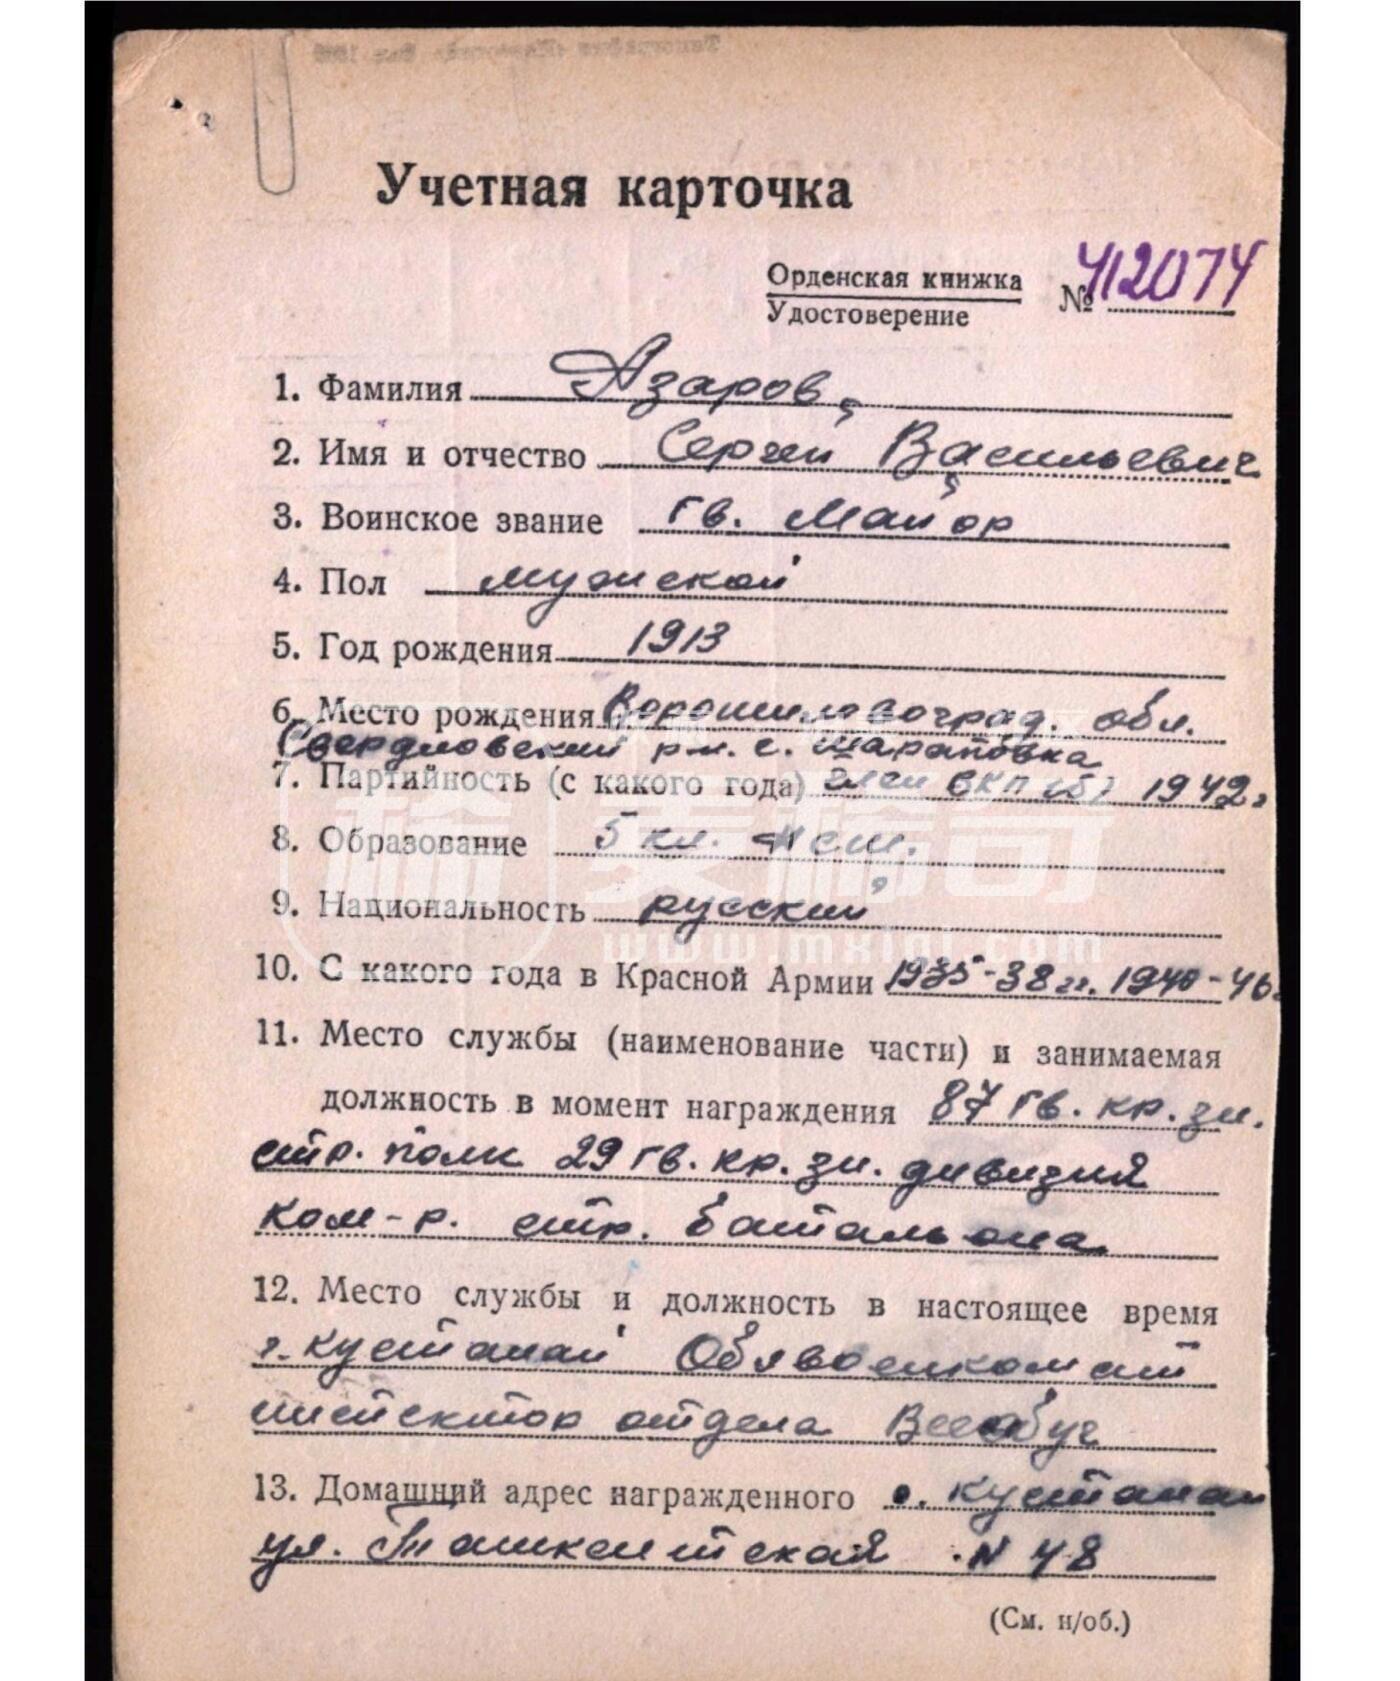 Учетная карточка
Орденская книжка
Удостоверение
№ 412074
1. Фамилия Азаров
2. Имя и отчество Сергей Васильевич
3. Воинское звание гв. Майор
4. Пол мужской
5. Год рождения 1913
6. Место рождения Ворошиловоград. обл.
Свердловский р-н. с. Шараповка
7. Партийность (с какого года) член ВКП(б) 1942г
8. Образование 5 кл. Нсш.
9. Национальность русский
www.mxigi.com
10. С какого года в Красной Армии 1935-38 гг. 1940-46
11. Место службы (наименование части) и занимаемая
должность в момент награждения 87 гв. кр. зн.
стр. полк 29 гв. кр. зн. дивизия
ком-р. стр. батальона
12. Место службы и должность в настоящее время
г. Кустанай Облвоенкомат
инспектор отдела Всеобуч
13. Домашний адрес награжденного г. Кустанай
ул. Ташкентская N 48
(См. н/об.)